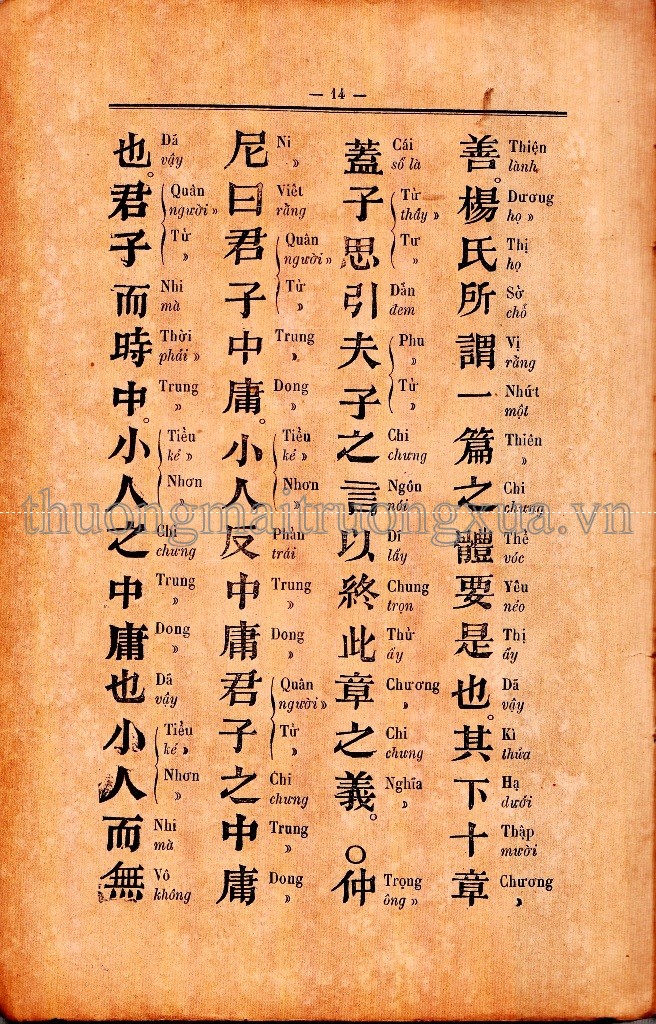 — 14 —
善。楊氏所謂一篇之體要是也。其下十章
Thiện
lành
Dương
họ »
Thị
họ
Sờ
chỗ
Vị
rằng
Nhứt
một
Thiên
»
Chi
chưng
Thể
vóc
Yêu
néo
Thị
ấy
Dã
vậy
Kì
thửa
Hạ
dưới
Thập
mười
Chương
»
蓋子思引夫子之言以終此章之義。○仲
Cái
số là
Tử
thầy »
Tư
»
Dẫn
đem
Phu
»
Tử
»
Chi
chưng
Ngôn
nói
Dĩ
lấy
Chung
trọn
Thử
ấy
Chương
»
Chi
chưng
Nghĩa
»
Trọng
ông »
尼曰君子中庸。小人反中庸君子之中庸
Ni
»
Viết
rằng
Quân
người »
Tử
»
Trung
»
Dong
»
Tiểu
kẻ »
Nhơn
»
Phản
trái
Trung
»
Dong
»
Quân
người »
Tử
»
Chi
chưng
Trung
»
Dong
»
也。君子而時中。小人之中庸也小人而無
Dã
vậy
Quân
người »
Tử
»
Nhi
mà
Thời
phải »
Trung
»
Tiểu
kẻ »
Nhơn
»
Chi
chưng
Trung
»
Dong
»
Dã
vậy
Tiểu
kẻ »
Nhơn
»
Nhi
mà
Vô
không
thuongmaitruongxua.vn